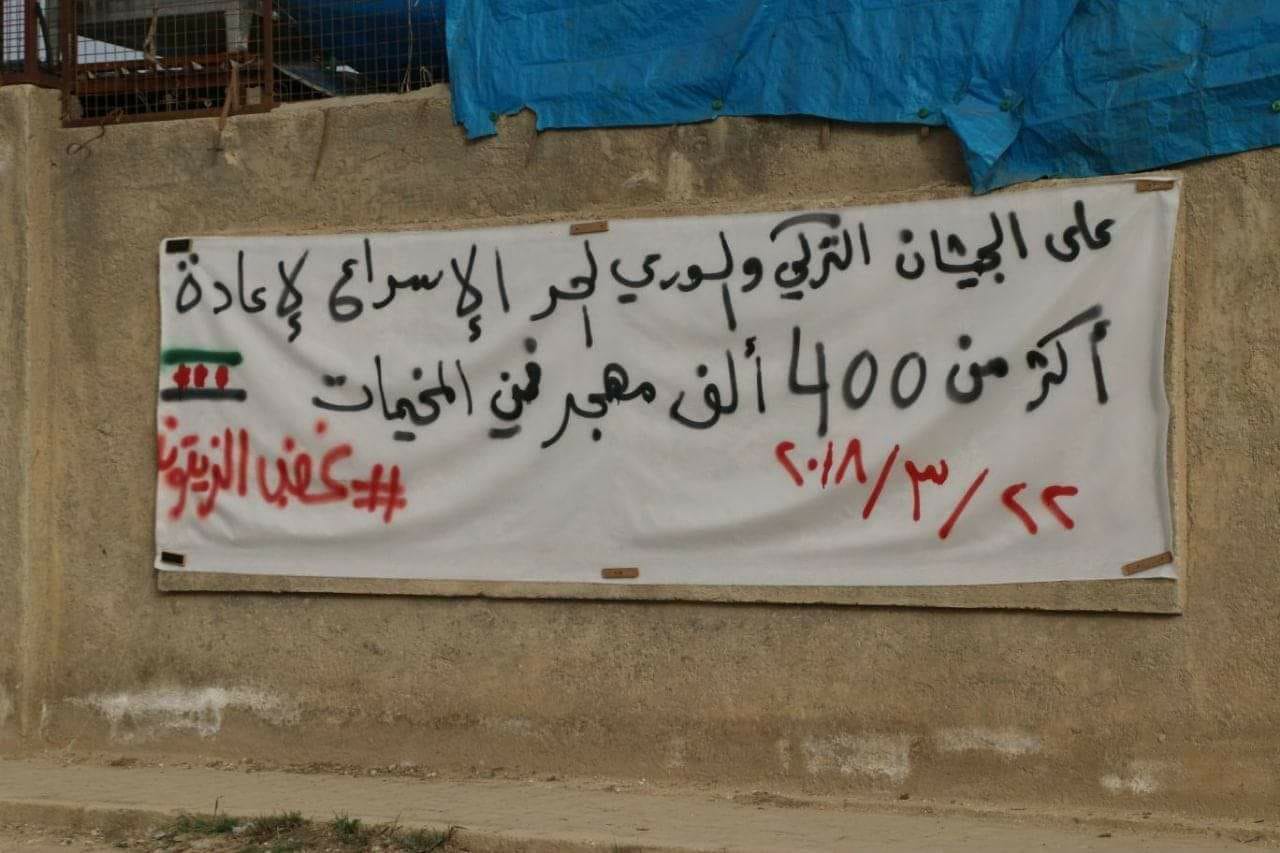 على الجيشان التركي والسوري الحر الإسراع لإعادة
أكثر من 400 ألف مهجر في المخيمات
٢٢/٣/٢٠١٨
#غضب_الزيتون